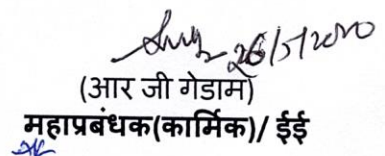 26/5/2020
(आर जी गेडाम)
महाप्रबंधक(कार्मिक)/ ईई